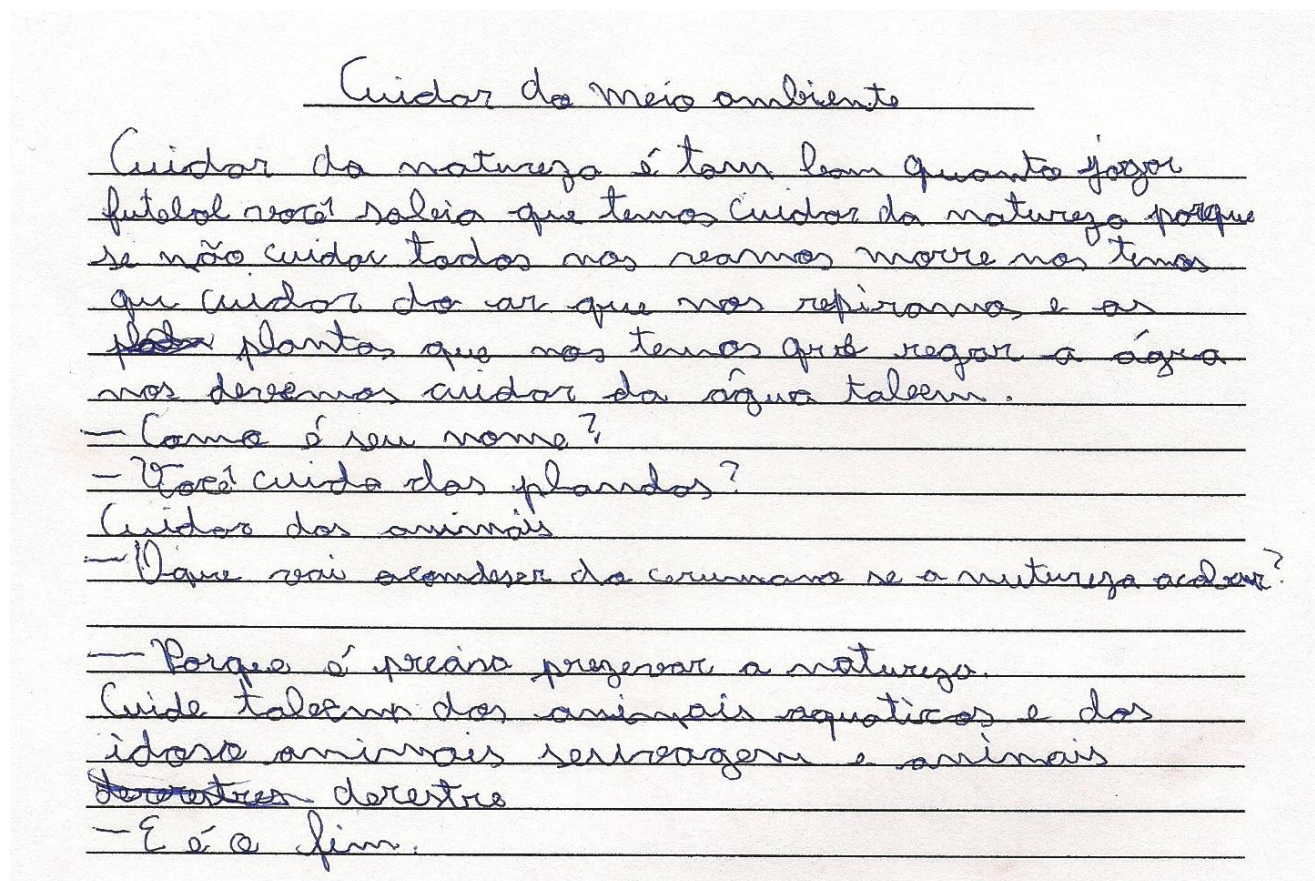 Cuidar do meio ambiente
Cuidar da natureza é tam bom quanto jogar
futebol você sabia que temos cuidar da natureza porque
se não cuidar todos nos vamos morre nos temos
que cuidar do ar que nos repiramos e as
plantas que nos temos que regar a água
nos devemos cuidar da água tabem.
– Como é seu nome?
– Você cuida das plandas?
Cuidar dos animais
– Oque vai acondeser do cerumano se a nutureza acabar?
– Porque é preciso prezervar a natureza.
Cuide tabem dos animais aquaticos e dos
idoso animais servagem e animais
derestre
– E é o fim.